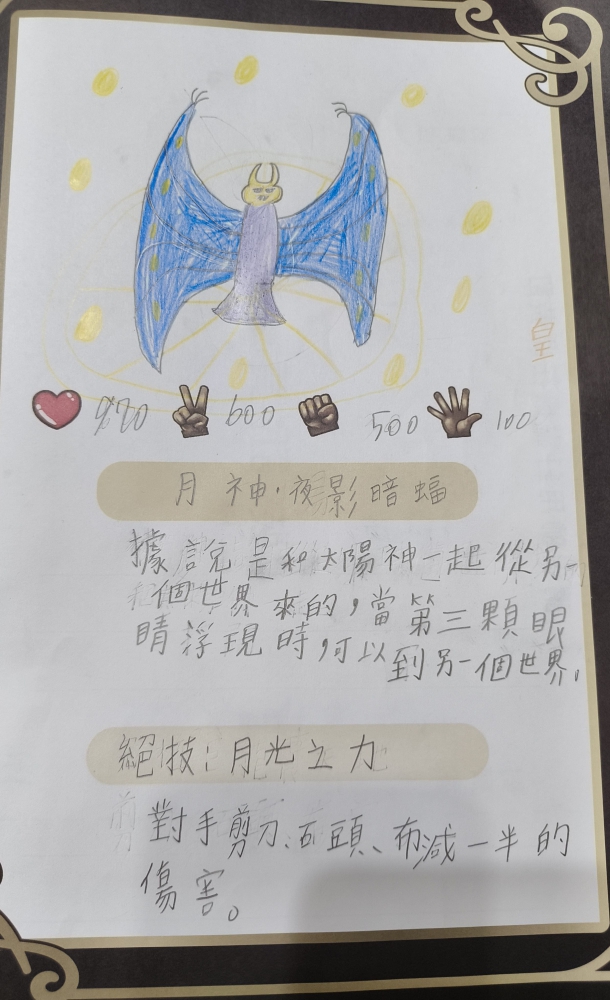 皇
970 600 500 100
月神·夜影暗蝠
據說是和太陽神一起從另一
個世界來的,當第三顆眼
睛浮現時,可以到另一個世界。
絕技:月光之力
對手剪刀、石頭、布減一半的
傷害。